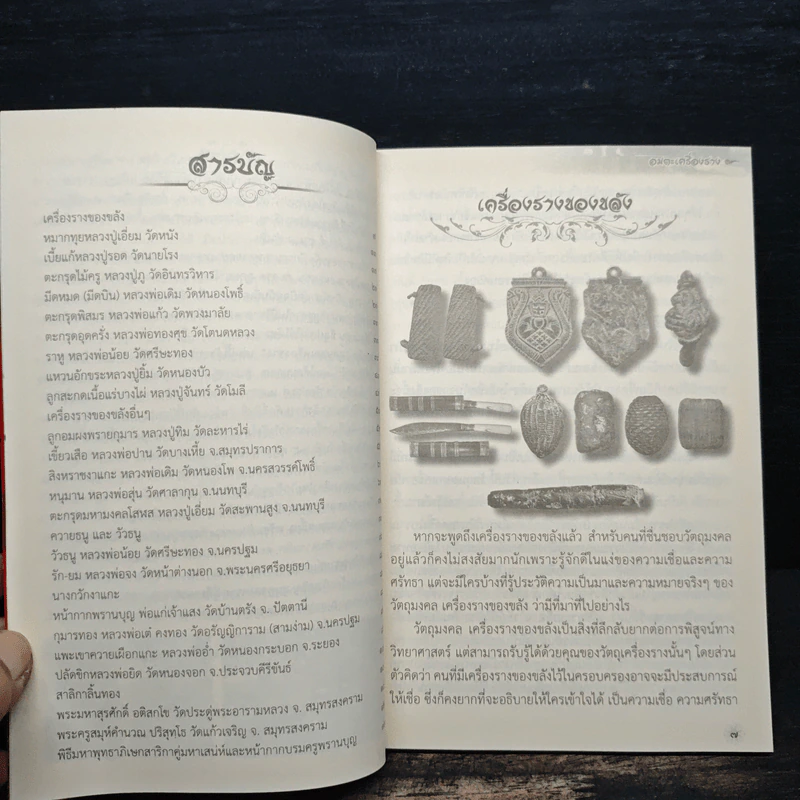 สารบัญ
เครื่องรางของขลัง
หมากทุยหลวงปู่เอี่ยม วัดหนัง
เบี้ยแก้หลวงปู่รอด วัดนายโรง
ตะกรุดไม้ครู หลวงปู่ภู วัดอินทรวิหาร
มีดหมด (มีดบิน) หลวงพ่อเดิม วัดหนองโพธิ์
ตะกรุดพิสมร หลวงพ่อแก้ว วัดพวงมาลัย
ตะกรุดอุดครั่ง หลวงพ่อทองศุข วัดโตนดหลวง
ราหู หลวงพ่อน้อย วัดศรีษะทอง
แหวนอักขระหลวงปู่ยิ้ม วัดหนองบัว
ลูกสะกดเนื้อแร่บางไผ่ หลวงปู่จันทร์ วัดโมลี
เครื่องรางของขลังอื่นๆ
ลูกอมผงพรายกุมาร หลวงปู่ทิม วัดละหารไร่
เขี้ยวเสือ หลวงพ่อปาน วัดบางเหี้ย จ.สมุทรปราการ
สิงหราชงาแกะ หลวงพ่อเดิม วัดหนองโพ จ.นครสวรรค์โพธิ์
หนุมาน หลวงพ่อสุ่น วัดศาลากุน จ.นนทบุรี
ตะกรุดมหามงคลโสฬส หลวงปู่เอี่ยม วัดสะพานสูง จ.นนทบุรี
ควายธนู และ วัวธนู
วัวธนู หลวงพ่อน้อย วัดศรีษะทอง จ.นครปฐม
รัก-ยม หลวงพ่อจง วัดหน้าต่างนอก จ.พระนครศรีอยุธยา
นางกวักงาแกะ
หน้ากากพรานบุญ พ่อแก่เจ้าแสง วัดบ้านตรัง จ. ปัตตานี
กุมารทอง หลวงพ่อเต๋ คงทอง วัดอรัญญิการาม (สามง่าม) จ.นครปฐม
แพะเขาควายเผือกแกะ หลวงพ่ออ่ำ วัดหนองกระบอก จ.ระยอง
ปลัดขิกหลวงพ่อยิด วัดหนองจอก จ.ประจวบคีรีขันธ์
สาลิกาลิ้นทอง
พระมหาสุรศักดิ์ อติสกโข วัดประดู่พระอารามหลวง จ. สมุทรสงคราม
พระครูสมุห์คำนวณ ปริสุทฺโธ วัดแก้วเจริญ จ. สมุทรสงคราม
พิธีมหาพุทธาภิเษกสาริกาคู่มหาเสน่ห์และหน้ากากบรมครูพรานบุญ
อมตะเครื่องราง
เครื่องรางของขลัง
หากจะพูดถึงเครื่องรางของขลังแล้ว สำหรับคนที่ชื่นชอบวัตถุมงคล
อยู่แล้วก็คงไม่สงสัยมากนักเพราะรู้จักดีในแง่ของความเชื่อและความ
ศรัทธา แต่จะมีใครบ้างที่รู้ประวัติความเป็นมาและความหมายจริงๆ ของ
วัตถุมงคล เครื่องรางของขลัง ว่ามีที่มาที่ไปอย่างไร
วัตถุมงคล เครื่องรางของขลังเป็นสิ่งที่ลึกลับยากต่อการพิสูจน์ทาง
วิทยาศาสตร์ แต่สามารถรับรู้ได้ด้วยคุณของวัตถุเครื่องรางนั้นๆ โดยส่วน
ตัวคิดว่า คนที่มีเครื่องรางของขลังไว้ในครอบครองอาจจะมีประสบการณ์
ให้เชื่อ ซึ่งก็คงยากที่จะอธิบายให้ใครเข้าใจได้ เป็นความเชื่อ ความศรัทธา
๗